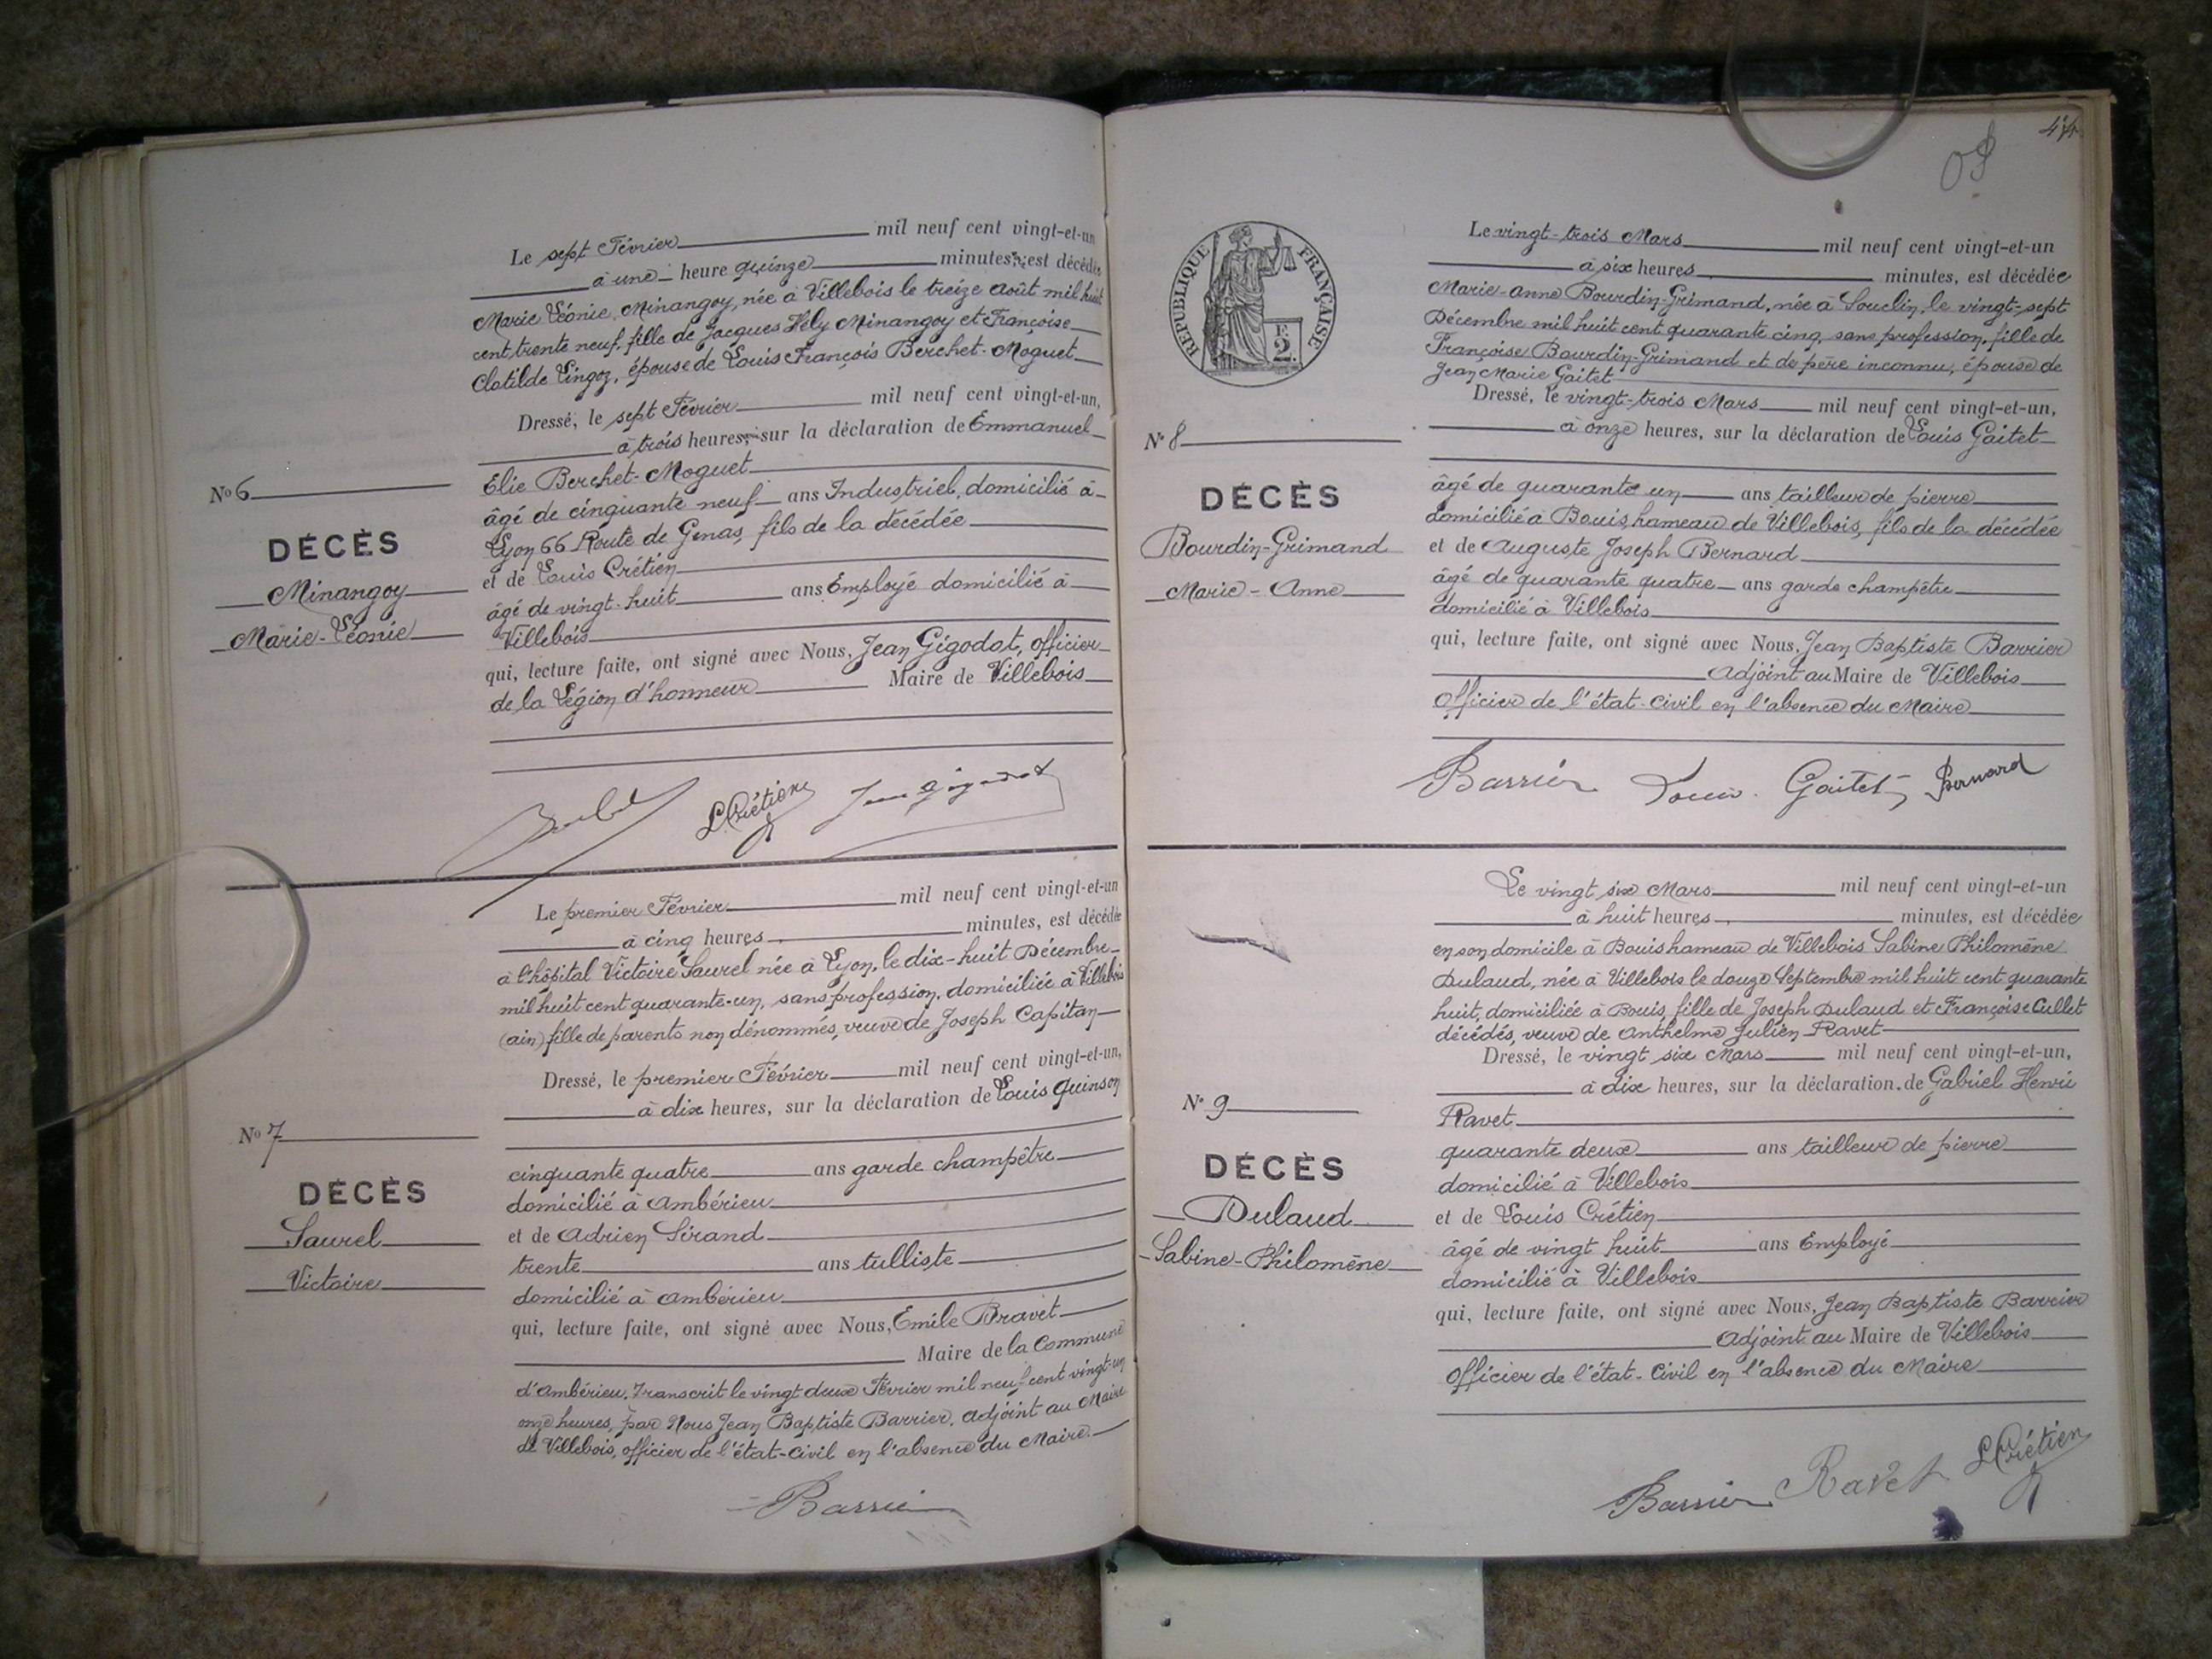 Le sept Février mil neuf cent vingt-et-un
à une heure quinze minutes, est décédée
Marie Léonie Minangoy, née à Villebois le treize Août mil huit
cent trente neuf, fille de Jacques Hély Minangoy et Françoise
Clotilde Lingoz, épouse de Louis François Berchet-Moguet
Dressé, le sept Février mil neuf cent vingt-et-un,
à trois heures, sur la déclaration de Emmanuel
Élie Berchet-Moguet
âgé de cinquante neuf ans Industriel, domicilié à
Lyon 66 Route de Genas, fils de la décédée
et de Louis Crétien
âgé de vingt-huit ans Employé domicilié à
Villebois
qui, lecture faite, ont signé avec Nous, Jean Gigodot, officier
de la Légion d'honneur Maire de Villebois
No 6
DÉCÈS
Minangoy
Marie-Léonie
LCrétien Jean Gigodot
Le premier Février mil neuf cent vingt-et-un
à cinq heures minutes, est décédée
à l'hôpital Victoire Saurel née à Lyon, le dix-huit Décembre
mil huit cent quarante-un, sans profession, domiciliée à Villebois
(ain) fille de parents non dénommés, veuve de Joseph Capitan
Dressé, le premier Février mil neuf cent vingt-et-un,
à dix heures, sur la déclaration de Louis Quinson
cinquante quatre ans garde champêtre
domicilié à Ambérieu
et de Adrien Sirand
trente ans tulliste
domicilié à Ambérieu
qui, lecture faite, ont signé avec Nous, Emile Bravet
Maire de la Commune
d'Ambérieu. Transcrit le vingt deux Février mil neuf cent vingt-un
onze heures, par Nous Jean Baptiste Barrier, adjoint au Maire
de Villebois, officier de l'état-civil en l'absence du Maire.
No 7
DÉCÈS
Saurel
Victoire
Barrier
RÉPUBLIQUE FRANÇAISE
2F
Le vingt-trois Mars mil neuf cent vingt-et-un
à six heures minutes, est décédée
Marie-Anne Bourdin-Grimand, née à Souclin, le vingt-sept
Décembre mil huit cent quarante cinq, sans profession, fille de
Françoise Bourdin-Grimand et de père inconnu, épouse de
Jean Marie Gaitet
Dressé, le vingt-trois Mars mil neuf cent vingt-et-un,
à onze heures, sur la déclaration de Louis Gaitet
âgé de quarante un ans tailleur de pierre
domicilié à Bouis hameau de Villebois, fils de la décédée
et de Auguste Joseph Bernard
âgé de quarante quatre ans garde champêtre
domicilié à Villebois
qui, lecture faite, ont signé avec Nous, Jean Baptiste Barrier
Adjoint au Maire de Villebois
Officier de l'état-civil en l'absence du Maire
N° 8
DÉCÈS
Bourdin-Grimand
Marie-Anne
Barrier Louis Gaitet Bernard
Le vingt six Mars mil neuf cent vingt-et-un
à huit heures minutes, est décédée
en son domicile à Bouis hameau de Villebois Sabine Philomène
Dulaud, née à Villebois le douze Septembre mil huit cent quarante
huit, domiciliée à Bouis, fille de Joseph Dulaud et Françoise Cullet
décédés, veuve de Anthelme Julien Ravet
Dressé, le vingt six Mars mil neuf cent vingt-et-un,
à dix heures, sur la déclaration de Gabriel Henri
Ravet
quarante deux ans tailleur de pierre
domicilié à Villebois
et de Louis Crétien
âgé de vingt huit ans Employé
domicilié à Villebois
qui, lecture faite, ont signé avec Nous, Jean Baptiste Barrier
Adjoint au Maire de Villebois
Officier de l'état-Civil en l'absence du Maire
N° 9
DÉCÈS
Dulaud
Sabine-Philomène
Barrier Ravet LCrétien